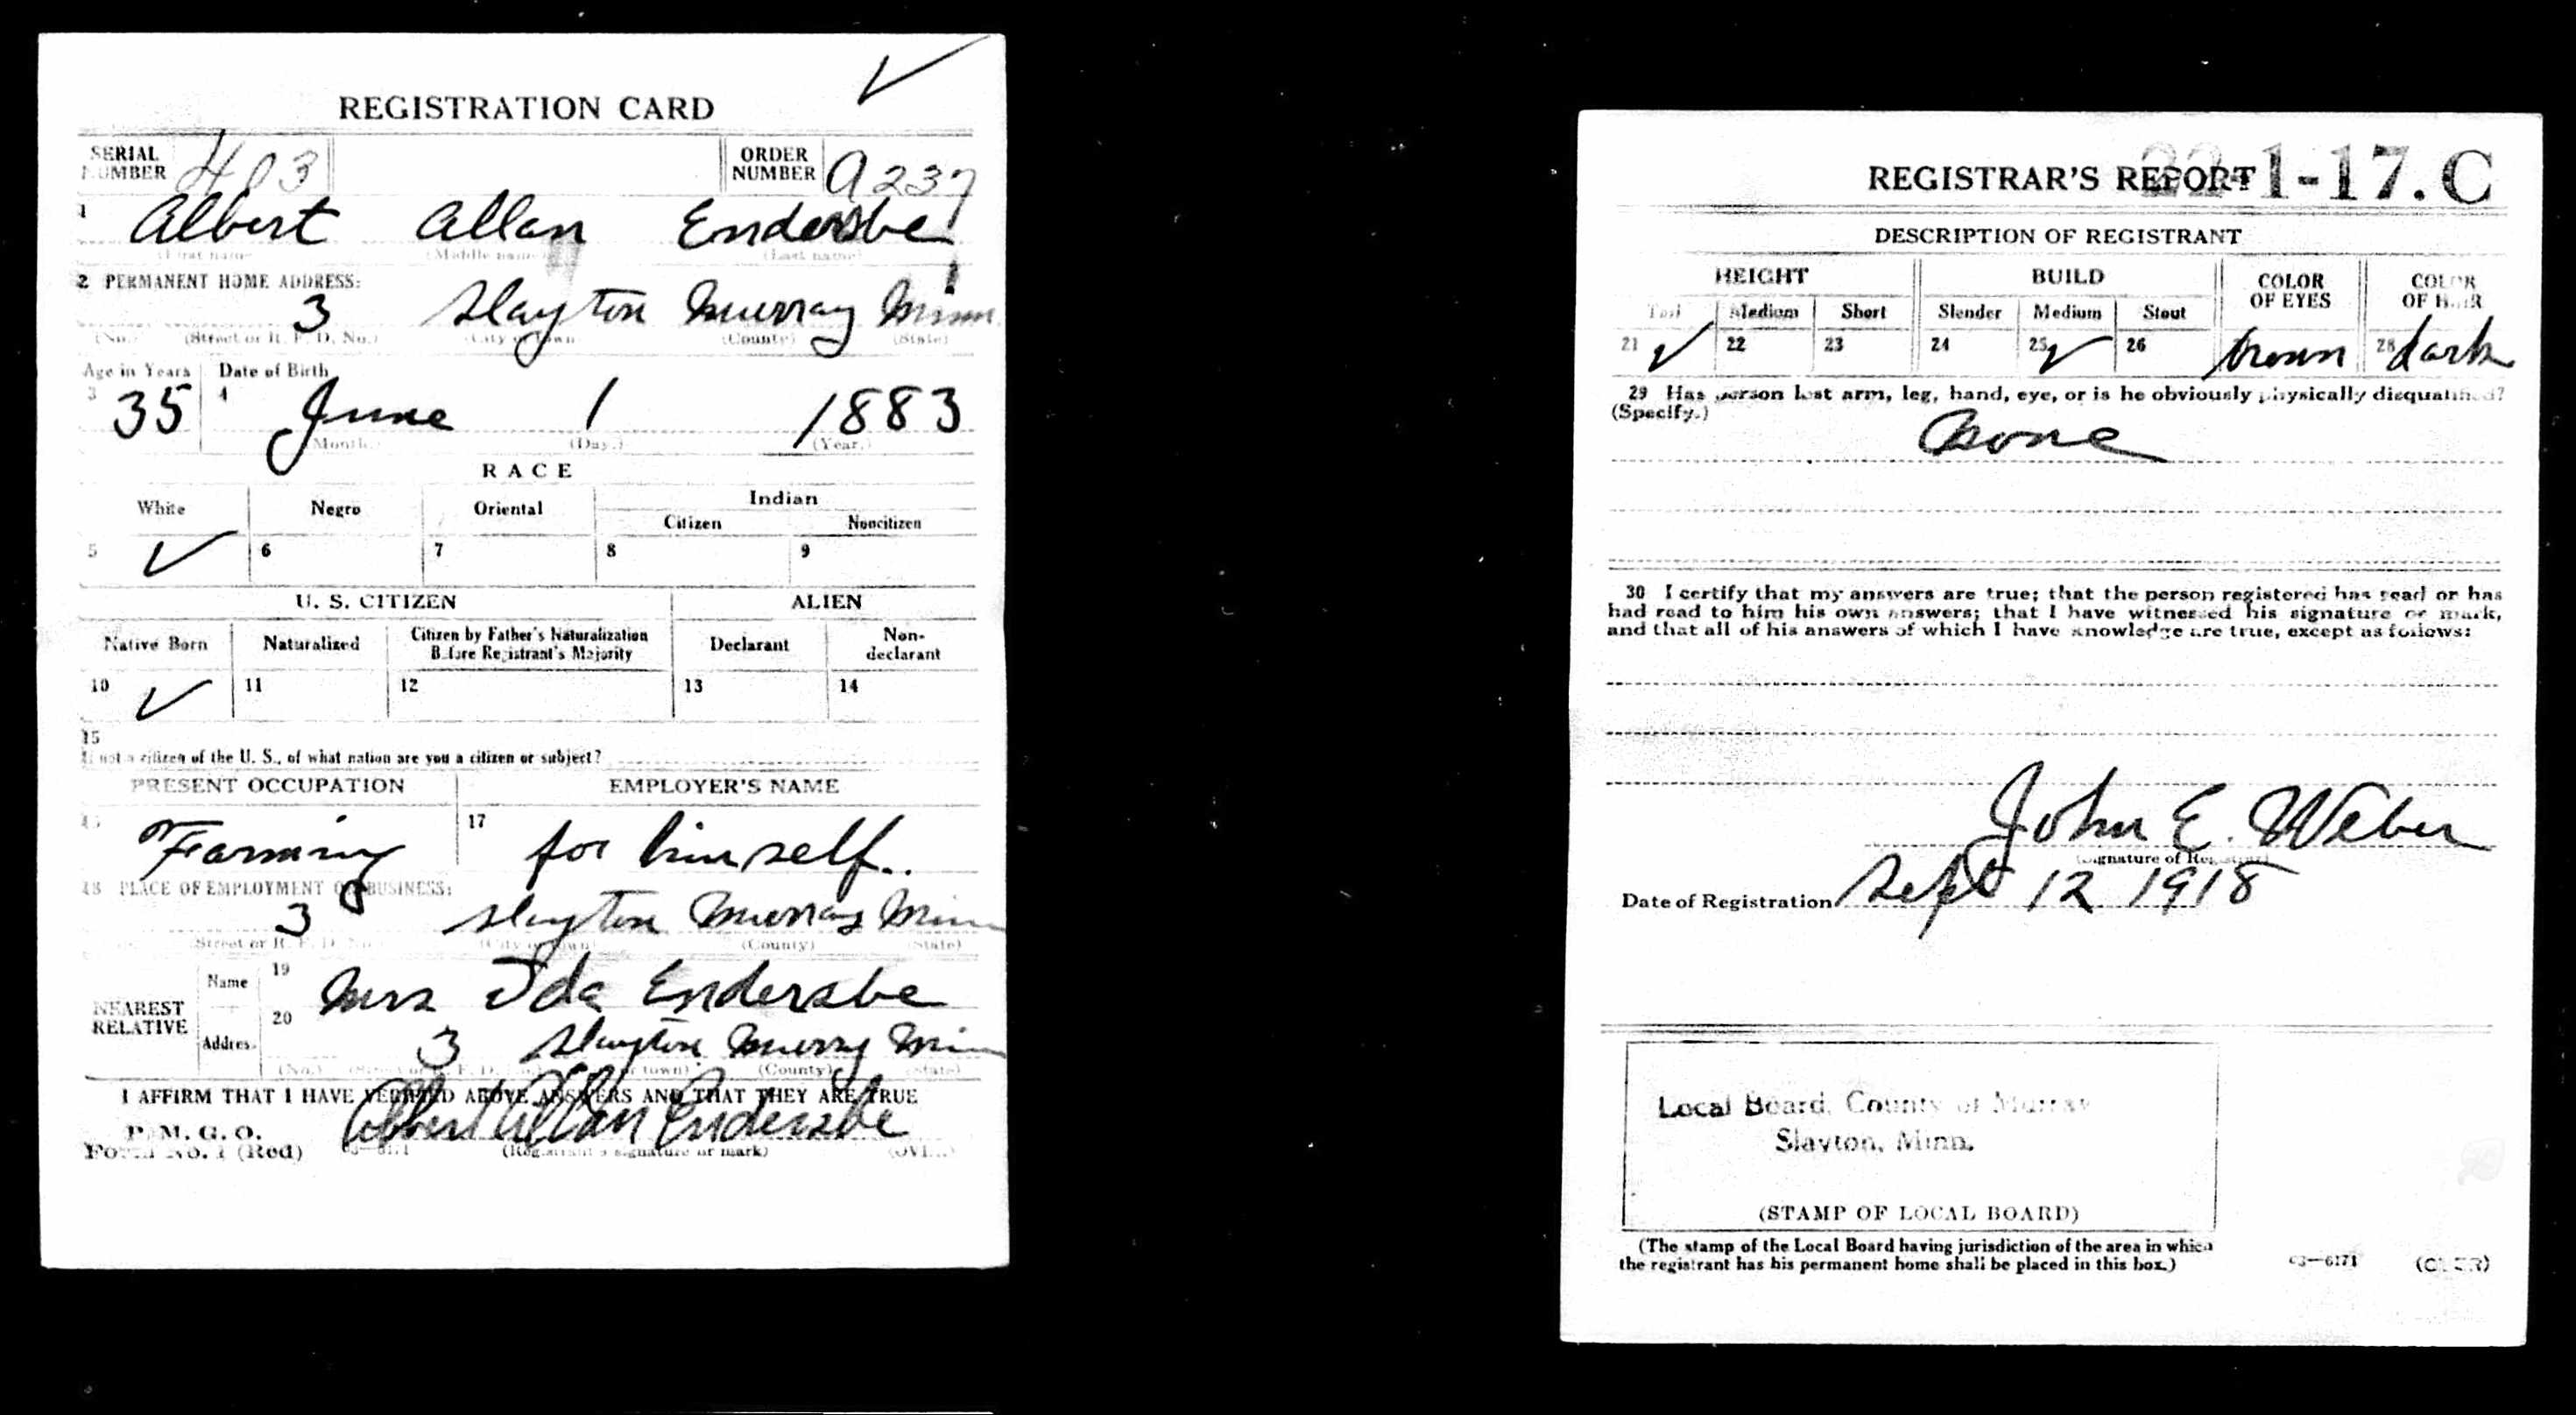 REGISTRATION CARD
SERIAL NUMBER 403 ORDER NUMBER A237
1 Albert Allan Endersbe
(First name) (Middle name) (Last name)
2 PERMANENT HOME ADDRESS:
3 Slayton Murray Minn
(No.) (Street or R. F. D. No.) (City or town) (County) (State)
Age in Years Date of Birth
3 35 4 June 1 1883
(Month.) (Day.) (Year.)
RACE
White Negro Oriental Indian
Citizen Noncitizen
5 ✓ 6 7 8 9
U. S. CITIZEN ALIEN
Native Born Naturalized Citizen by Father's Naturalization Before Registrant's Majority Declarant Non-declarant
10 ✓ 11 12 13 14
15
If not a citizen of the U. S., of what nation are you a citizen or subject?
PRESENT OCCUPATION EMPLOYER'S NAME
16 Farming 17 for himself.
18 PLACE OF EMPLOYMENT OR BUSINESS:
3 Slayton Murray Minn
(Street or R. F. D. No.) (City or town) (County) (State)
NEAREST RELATIVE Name 19 Mrs Ida Endersbe
Address 20 3 Slayton Murray Minn
(No.) (Street or R. F. D. No.) (City or town) (County) (State)
I AFFIRM THAT I HAVE VERIFIED ABOVE ANSWERS AND THAT THEY ARE TRUE
P. M. G. O.
Form No. 1 (Red) 03—6171 Albert Allan Endersbe
(Registrant's signature or mark) (OVER)
REGISTRAR'S REPORT 22-1-17. C
DESCRIPTION OF REGISTRANT
HEIGHT BUILD COLOR OF EYES COLOR OF HAIR
Tall Medium Short Slender Medium Stout
21 ✓ 22 23 24 25 ✓ 26 brown 28 dark
29 Has person lost arm, leg, hand, eye, or is he obviously physically disqualified?
(Specify.)
None
30 I certify that my answers are true; that the person registered has read or has
had read to him his own answers; that I have witnessed his signature or mark,
and that all of his answers of which I have knowledge are true, except as follows:
John E. Weber
(Signature of Registrar)
Date of Registration Sept 12 1918
Local Board, County of Murray
Slayton, Minn.
(STAMP OF LOCAL BOARD)
(The stamp of the Local Board having jurisdiction of the area in which
the registrant has his permanent home shall be placed in this box.)
03—6171 (OVER)